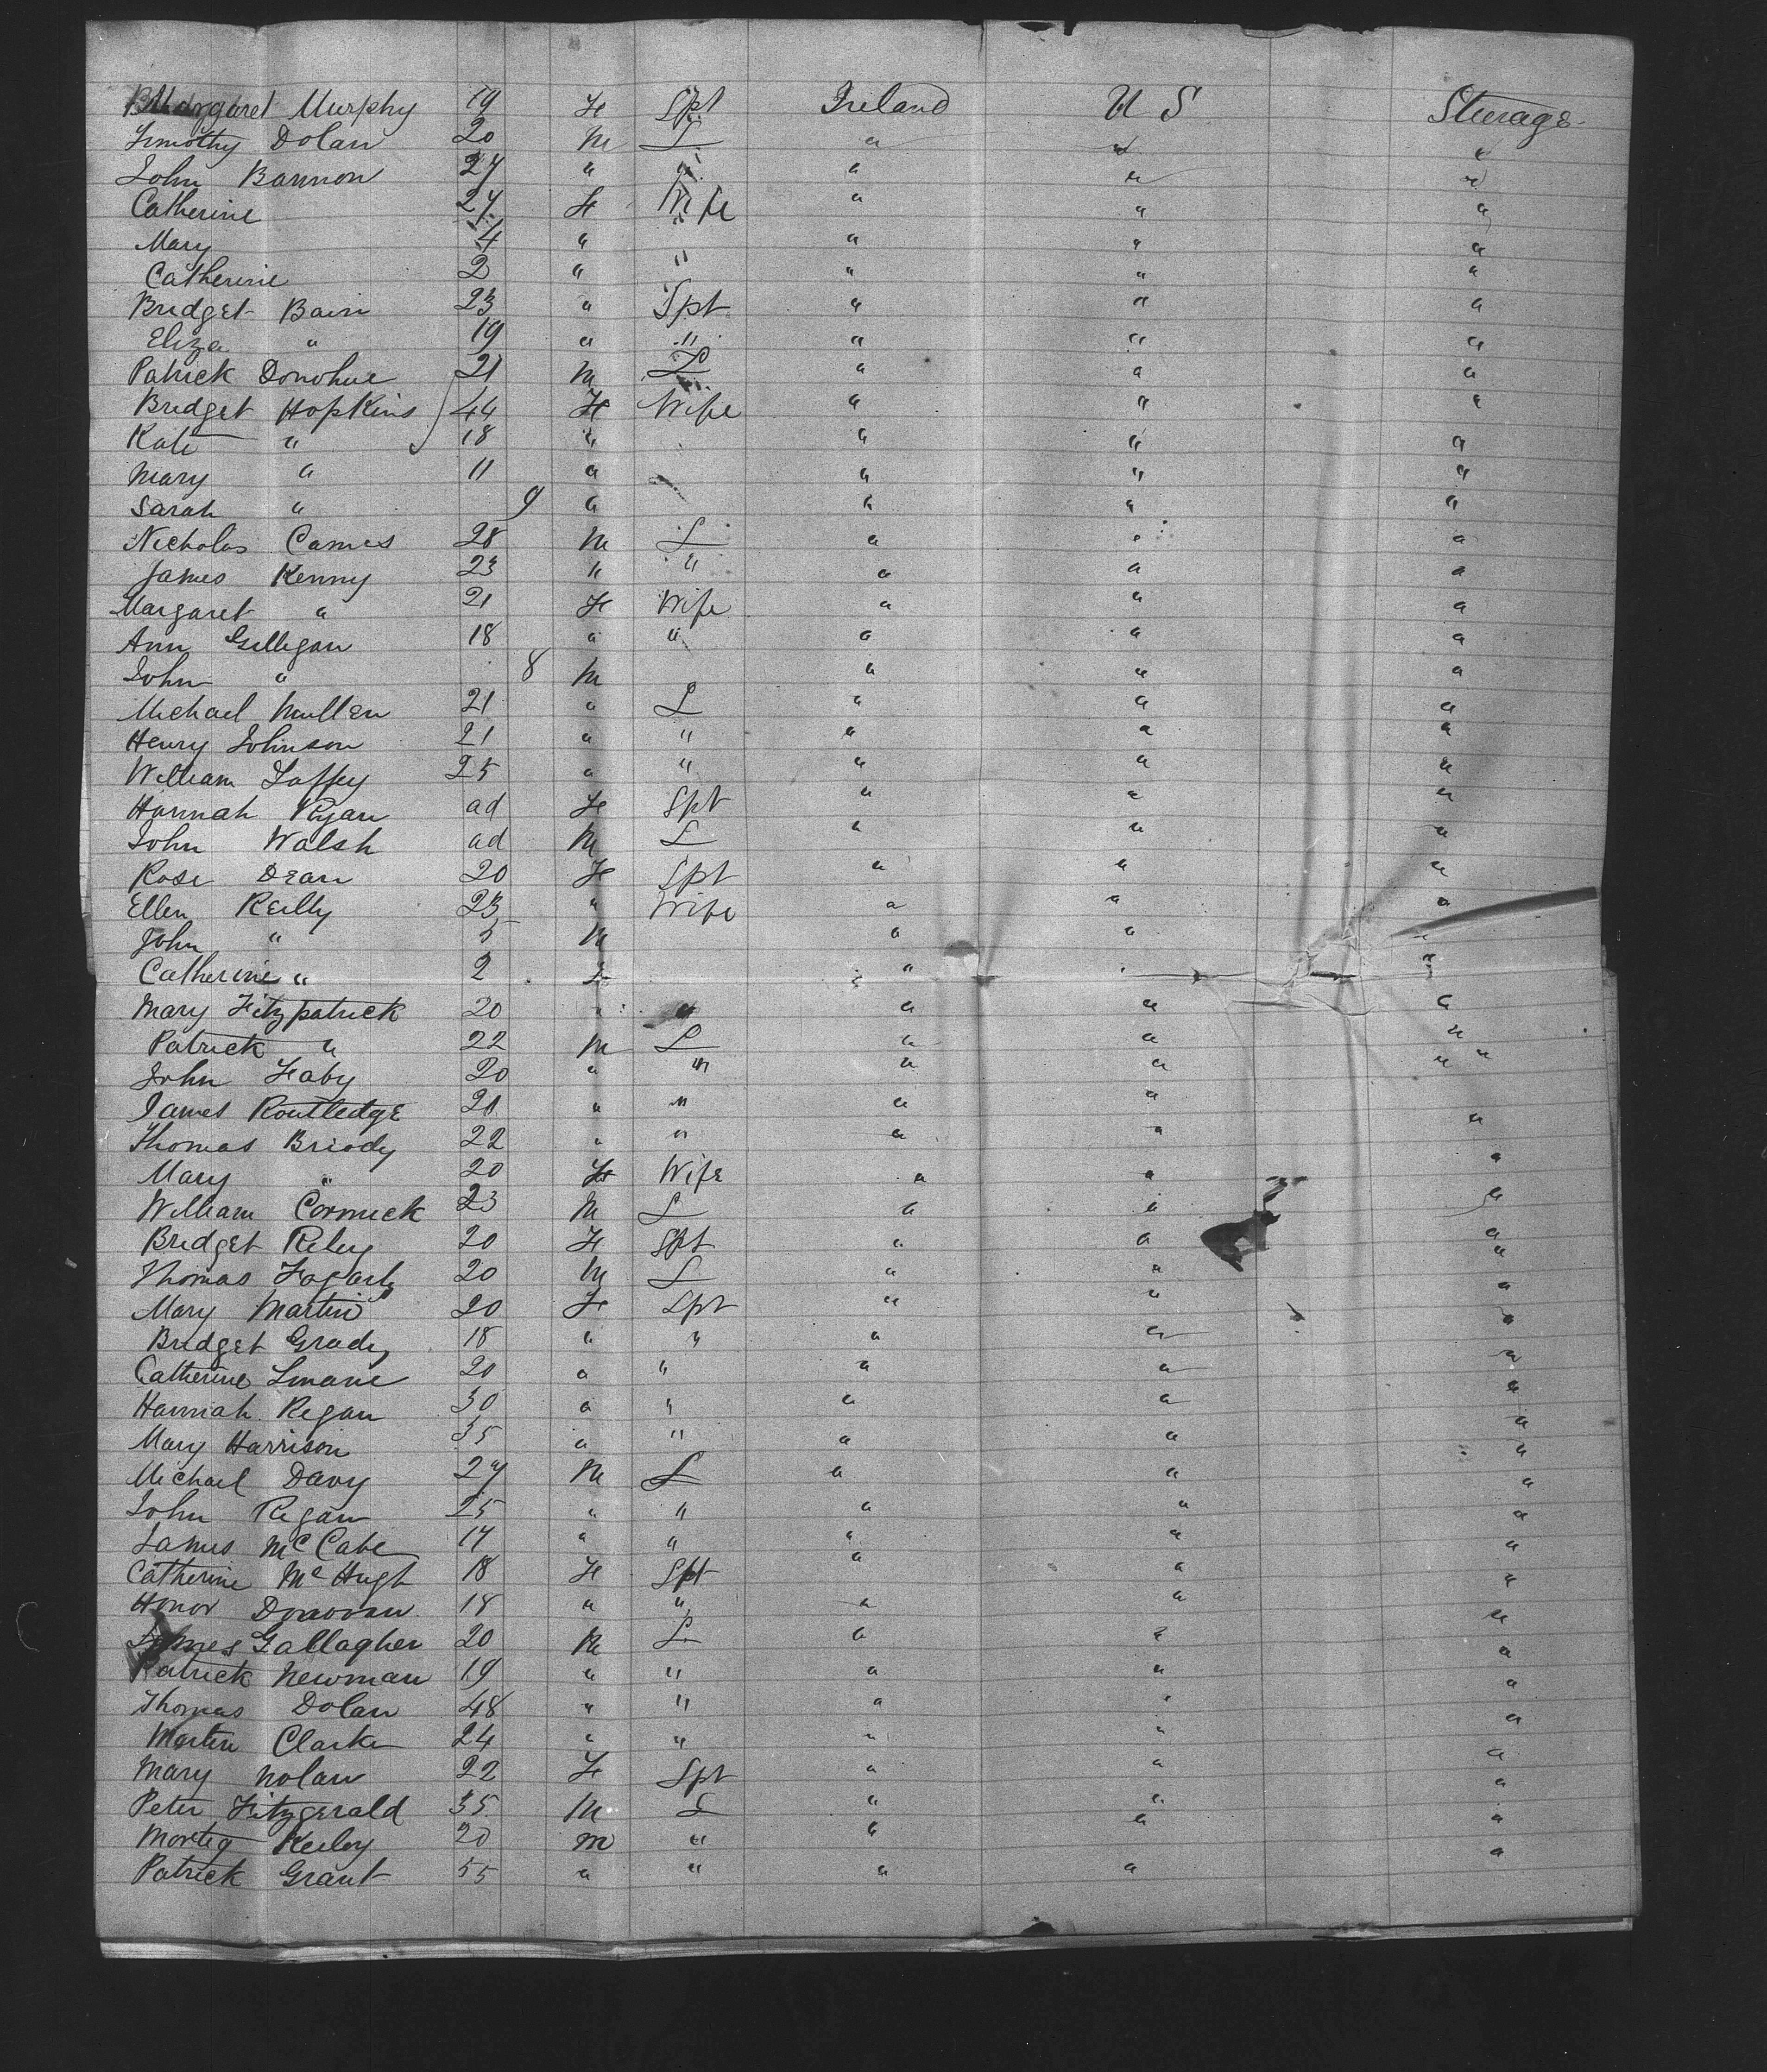 Margaret Murphy 19 F Spt Ireland U S Steerage
Timothy Dolan 20 M L " " "
John Bannon 27 " " " " "
Catherine 27 F Wife " " "
Mary 4 " " " " "
Catherine 2 " " " " "
Bridget Bain 23 " Spt " " "
Eliza " 19 " " " " "
Patrick Donohue 21 M L " " "
Bridget Hopkins 44 F Wife " " "
Kate " 18 " " " "
Mary " 11 " " " "
Sarah " 9 " " " "
Nicholas 28 M L " " "
James Kenny 23 " " " " "
Margaret " 21 F Wife " " "
Ann Gilligan 18 " " " " "
John " 8 M " " "
Michael Mullen 21 " L " " "
Henry Johnson 21 " " " " "
William Laffey 25 " " " " "
Hannah Ryan ad F Spt " " "
John Walsh ad M L " " "
Rose Dean 20 F Spt " " "
Ellen Reilly 23 " Wife " " "
John " 5 M " " "
Catherine " 2 F " " "
Mary Fitzpatrick 20 " " " " "
Patrick " 22 M L " " "
John Fahy 20 " " " " " "
James Routledge 21 " " " "
Thomas Briody 22 " " " " "
Mary " 20 F Wife " " "
William Cormick 23 M L " " "
Bridget Riley 20 F Spt " " "
Thomas Fogarty 20 M L " " "
Mary Martin 20 F Spt " " "
Bridget Grady 18 " " " " "
Catherine 20 " " " " "
Hannah Regan 30 " " " " "
Mary Harrison 35 " " " " "
Michael Davy 27 M L " " "
John Regan 25 " " " " "
James McCabe 17 " " " " "
Catherine McHugh 18 F Spt " " "
Honor Donovan 18 " " " " "
James Gallagher 20 M L " " "
Patrick Newman 19 " " " " "
Thomas Dolan 48 " " " " "
Martin Clarke 24 " " " " "
Mary Nolan 22 F Spt " " "
Peter Fitzgerald 35 M L " " "
20 M " " " "
Patrick Grant 55 " " " " "